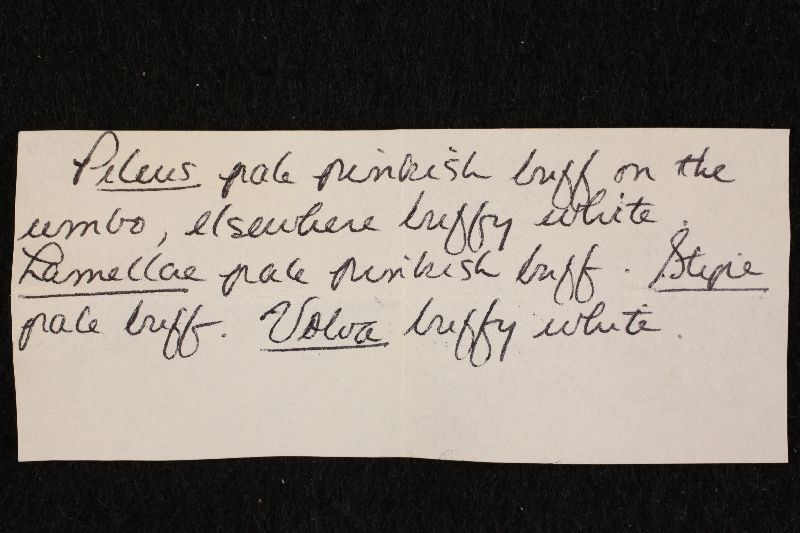 Pileus pale pinkish buff on the
umbo, elsewhere buffy white.
Lamellae pale pinkish buff. Stipe
pale buff. Volva buffy white.